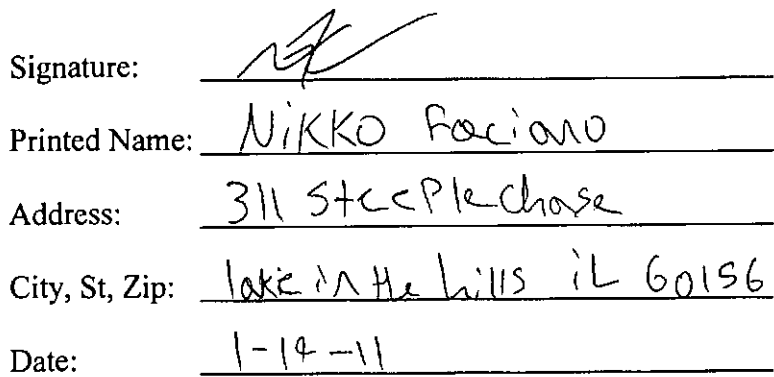 Signature:
Printed Name: NiKKO Faciano
Address: 311 SteePlechase
City, St, Zip: lake in the hills iL 60156
Date: 1-14-11